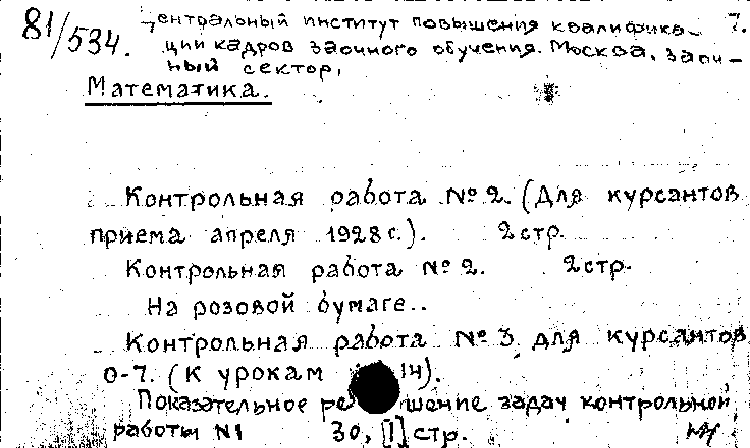 81/534. Центральный институт повышения квалифика- 7.
ции кадров заочного обучения. Москва. Заоч-
ный сектор.
Математика.
Контрольная работа № 2. (Для курсантов
приема апреля 1928 г.). 2 стр.
Контрольная работа № 2. 2 стр.
На розовой бумаге..
Контрольная работа № 3 для курсантов
0-7. (К урокам 14).
Показательное ре шение задач контрольной
работы № 1 30, [1] стр.